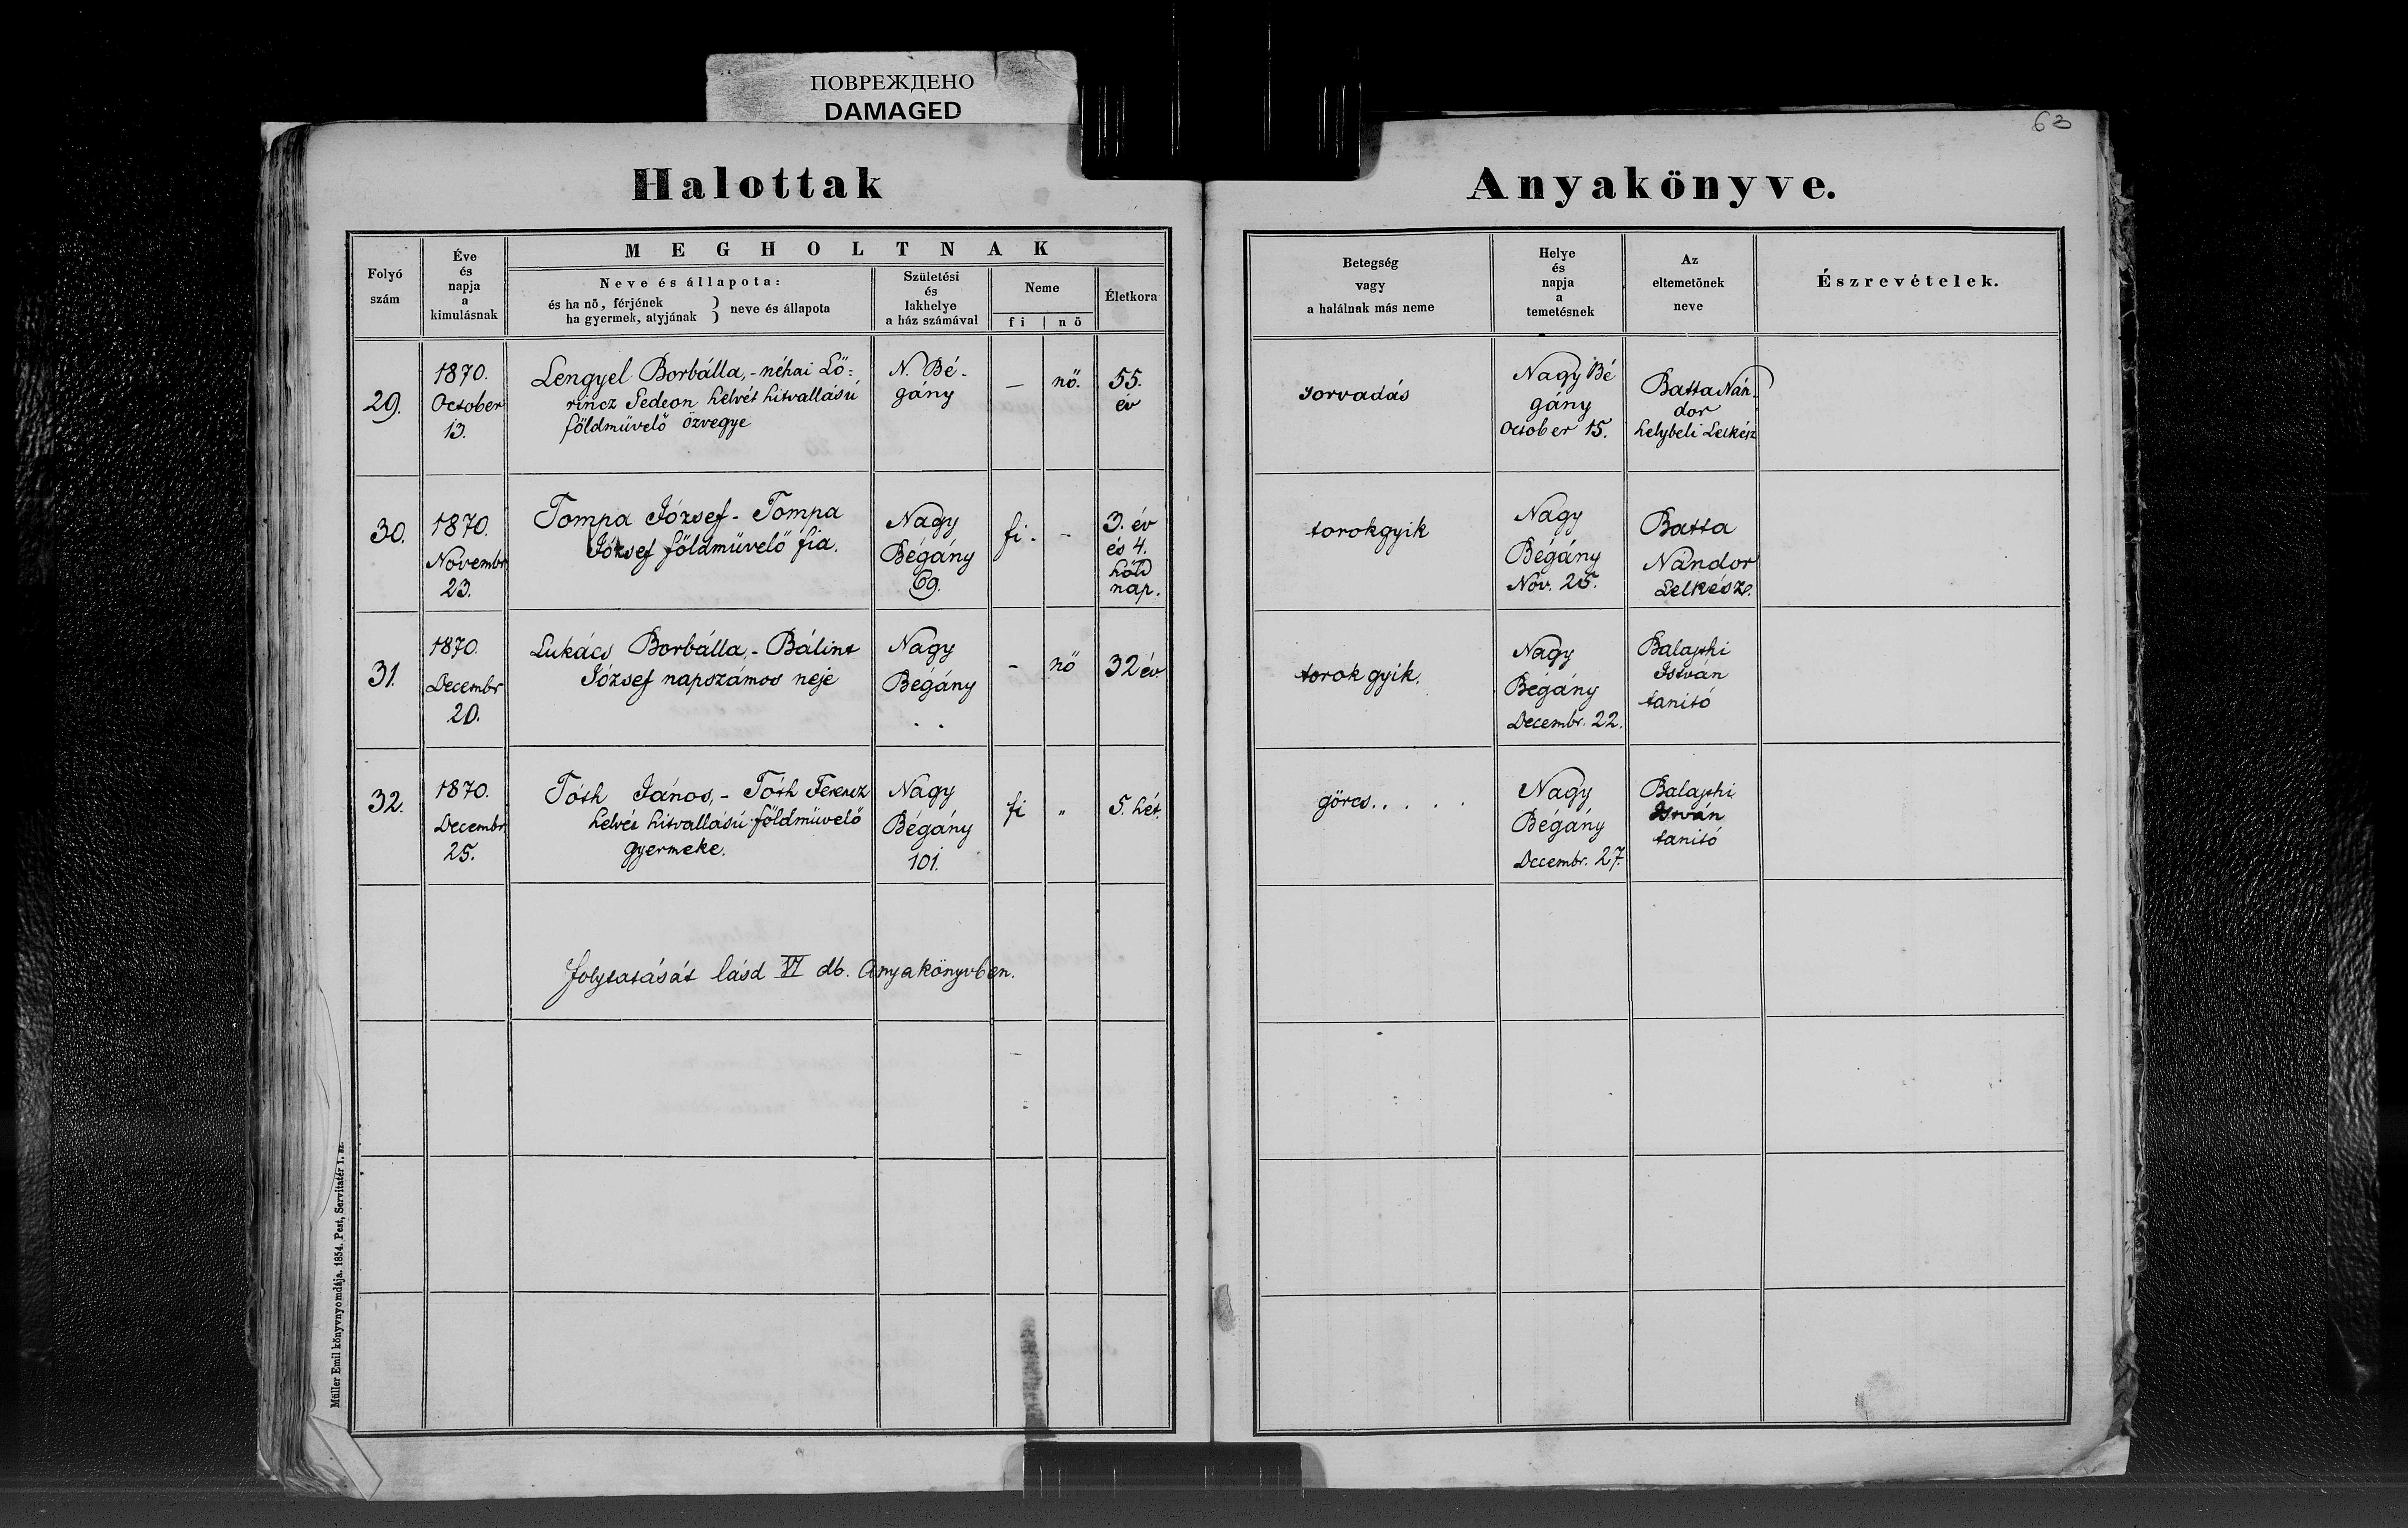 ПОВРЕЖДЕНО
DAMAGED
63
Halottak
Anyakönyve.
Folyó
szám
Éve
és
napja
a
kimulásnak
MEGHOLTNAK
Neve és állapota:
és ha nő, férjének
ha gyermek, atyjának
} neve és állapota
Születési
és
lakhelye
a ház számával
Neme
fi | nő
Életkora
Betegség
vagy
a halálnak más neme
Helye
és
napja
a
temetésnek
Az
eltemetőnek
neve
Észrevételek.
29.
1870.
October
13.
Lengyel Borbálla,- néhai Lő=
rincz Gedeon helvét hitvallású
földmüvelő özvegye
N. Bé-
gány
—
nő.
55.
év
sorvadás
Nagy Bé
gány
October 15.
Batta Nán-
dor
helybeli Lelkész
30.
1870.
Novembr
23.
Tompa József- Tompa
József földmüvelő fia.
Nagy
Bégány
69.
fi.
-
3. év
és 4.
hóld
nap.
torokgyik
Nagy
Bégány
Nov. 25.
Batta
Nándor
Lelkész.
31.
1870.
Decembr
20.
Lukács Borbálla,- Bálint
József napszámos neje
Nagy
Bégány
. .
-
nő
32 év
torok gyik.
Nagy
Bégány
Decembr. 22.
Balajthi
István
tanitó
32.
1870.
Decembr.
25.
Tóth János,- Tóth Ferencz
helvét hitvallású földmüvelő
gyermeke.
Nagy
Bégány
101.
fi
"
5. hét.
görcs. . . . .
Nagy
Bégány
Decembr. 27.
Balajthi
István
tanitó
folytatását lásd VI db. Anyakönyvben.
Müller Emil könyvnyomdája. 1854. Pest, Servitatér 1. sz.